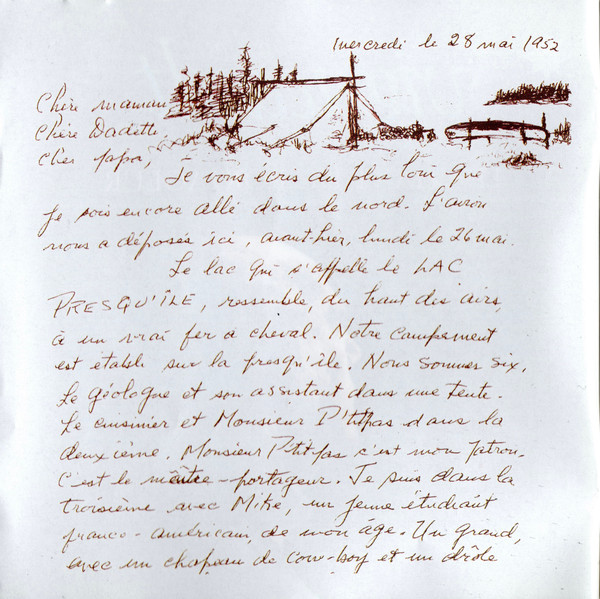 Mercredi le 28 mai 1952
Chère maman
Chère Dadette
Cher papa,
Je vous écris du plus loin que
je sois encore allé dans le nord. L'avion
nous a déposés ici, avant-hier, lundi le 26 mai.
Le lac qui s'appelle le LAC
PRESQU'ÎLE, ressemble, du haut des airs,
à un vrai fer à cheval. Notre campement
est établi sur la presqu'île. Nous sommes six.
Le géologue et son assistant dans une tente.
Le cuisinier et Monsieur P'titpas dans la
deuxième. Monsieur P'titpas c'est mon patron.
C'est le maître-portageur. Je suis dans la
troisième avec Mike, un jeune étudiant
franco-américain, de mon âge. Un grand,
avec un chapeau de cow-boy et un drôle